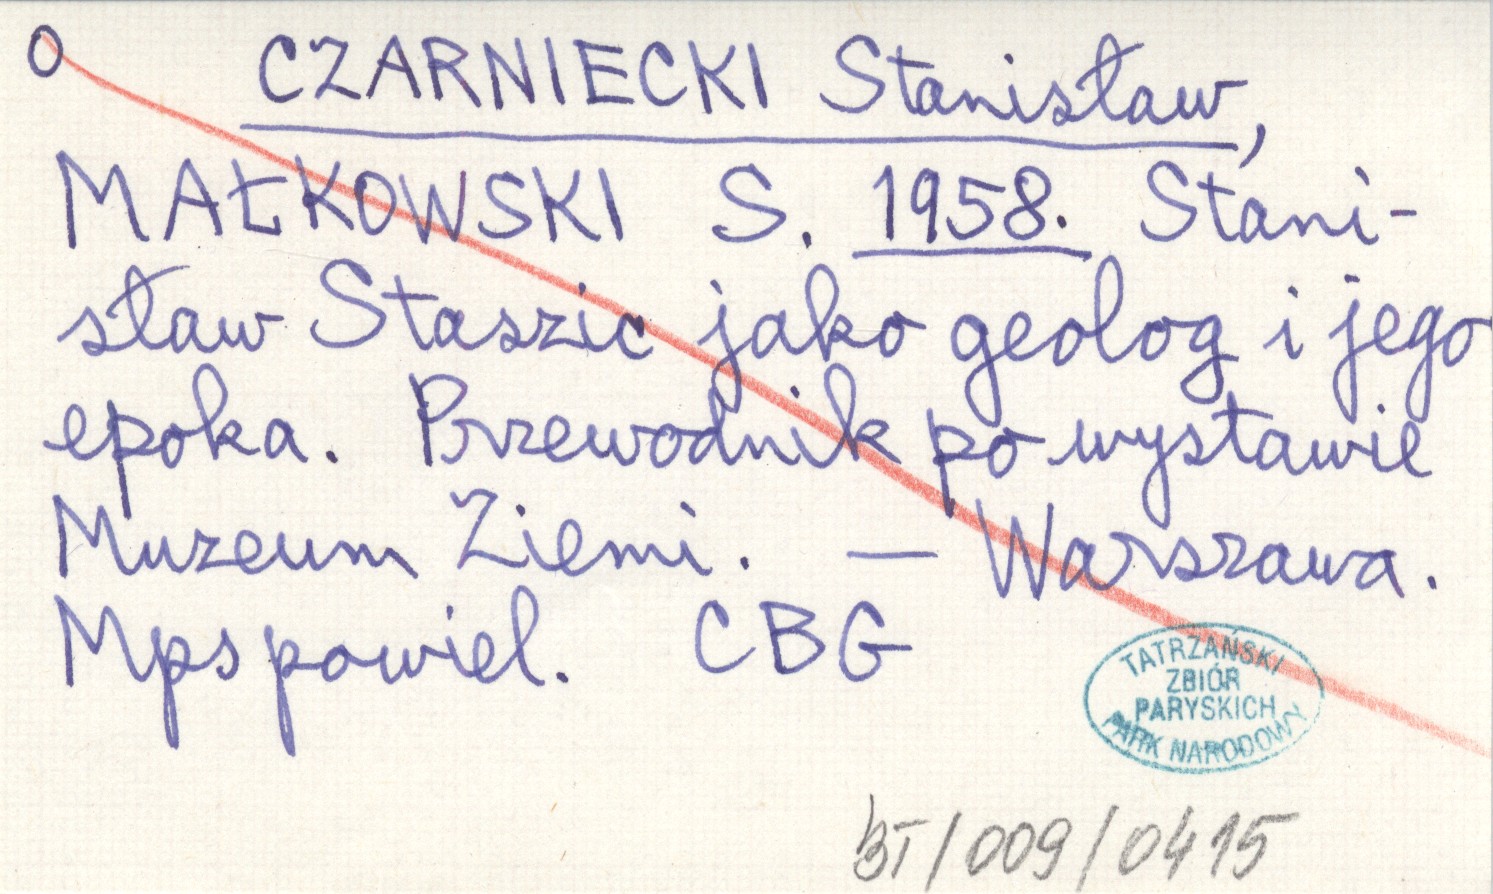 O CZARNIECKI Stanisław,
MAŁKOWSKI S. 1958. Stani-
sław Staszic jako geolog i jego
epoka. Przewodnik po wystawie
Muzeum Ziemi. — Warszawa.
Mps powiel. CBG
TATRZAŃSKI
ZBIÓR
PARYSKICH
PARK NARODOWY
BT/009/0415